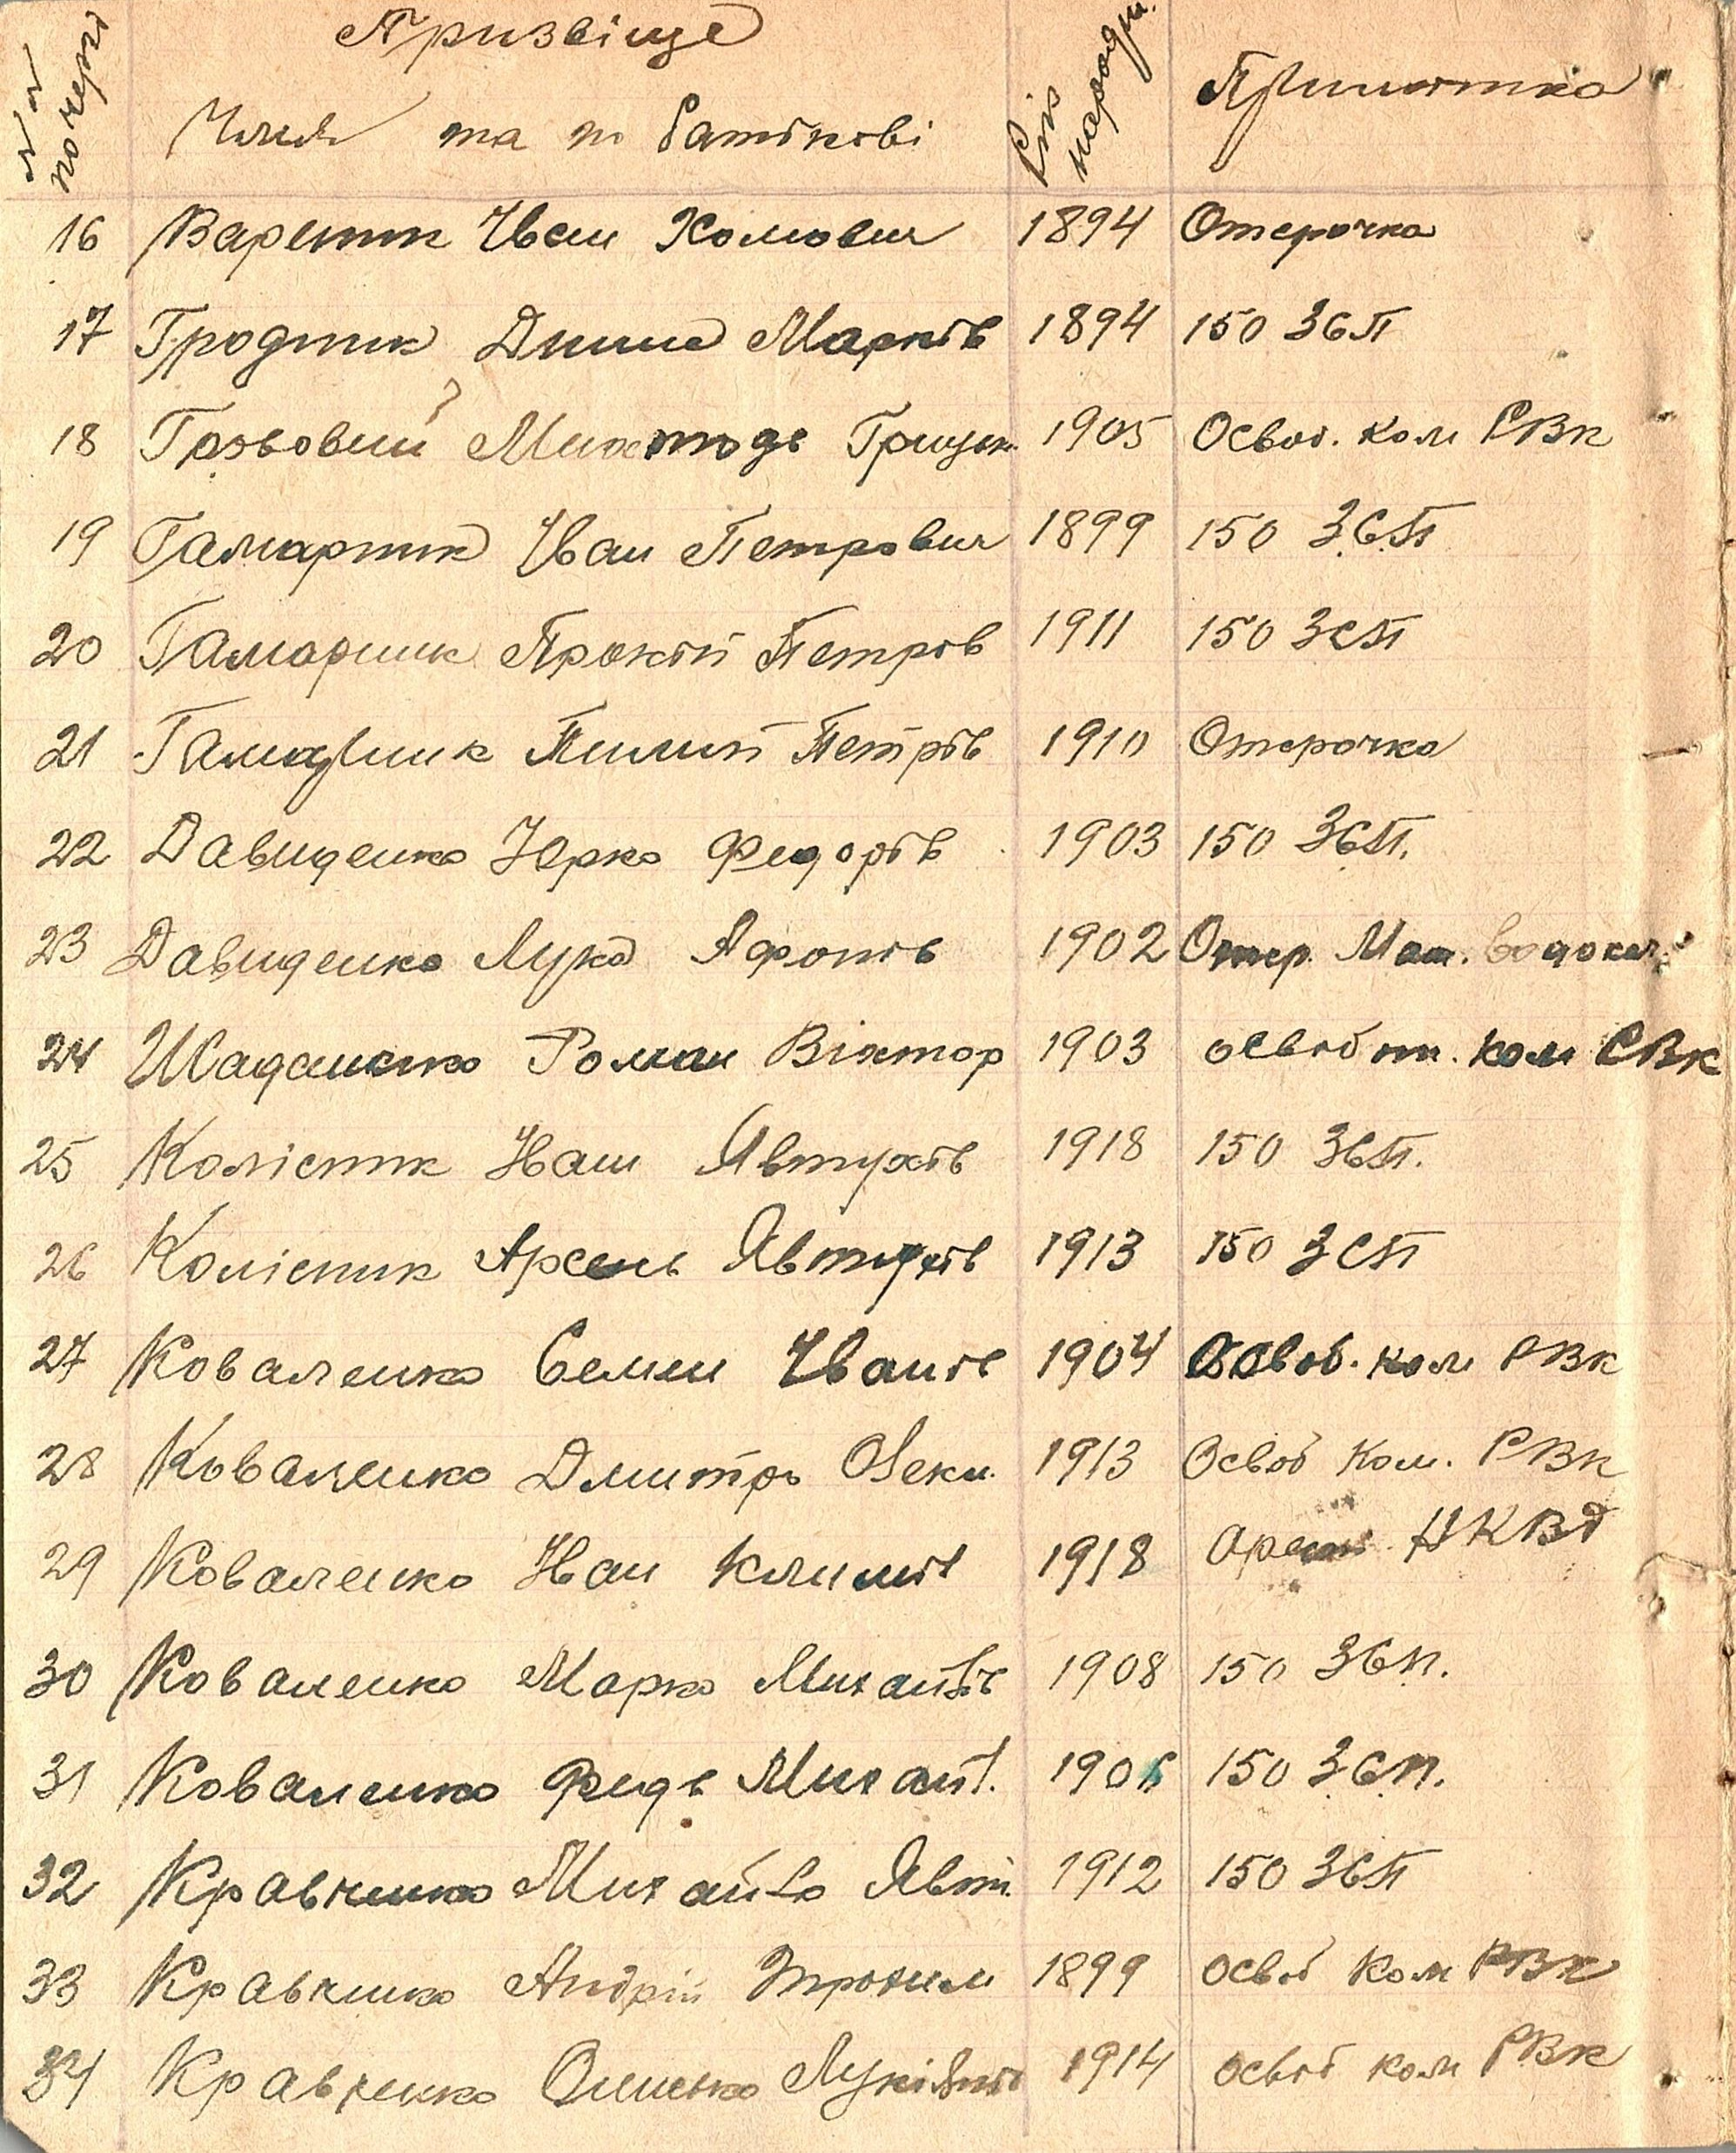 № № по черзі
Призвіще
Имья та по батькові
Рік народж.
Примітка
16 Вареник Іван Хомович 1894 Отсрочка
17 Гродник Марків 1894 150 ЗСП
18 Михтодь Грицьк. 1905 Освоб. ком РВК
19 Гамарник Іван Петрович 1899 150 ЗСП
20 Гамарник Прокіп Петрів 1911 150 ЗСП
21 Гамарник Пилип Петрів 1910 Отсрочка
22 Давиденко Юрко Федорів 1903 150 ЗСП.
23 Давиденко Лука Афонів 1902 Отср. Маш. водокач.
24 Роман Віктор 1903 освоб от. ком РВК
25 Колісник Іван Явтухів 1918 150 ЗСП.
26 Колісник Арсень Явтухів 1913 150 ЗСП
27 Коваленко Семен Іванів 1904 Освоб. ком РВК
28 Коваленко Дмитро Олекс. 1913 Освоб Ком. РВК
29 Коваленко Іван Климів 1918 Арест. НКВД
30 Коваленко Марко Михайлів 1908 150 ЗСП.
31 Коваленко Федь Михайл. 150 ЗСП.
32 Кравченко Михайло Явт. 1912 150 ЗСП
33 Кравченко Андрій Трохим 1899 освоб Ком РВК
34 Кравченко Олисько Лукіянів 1914 освоб ком РВК